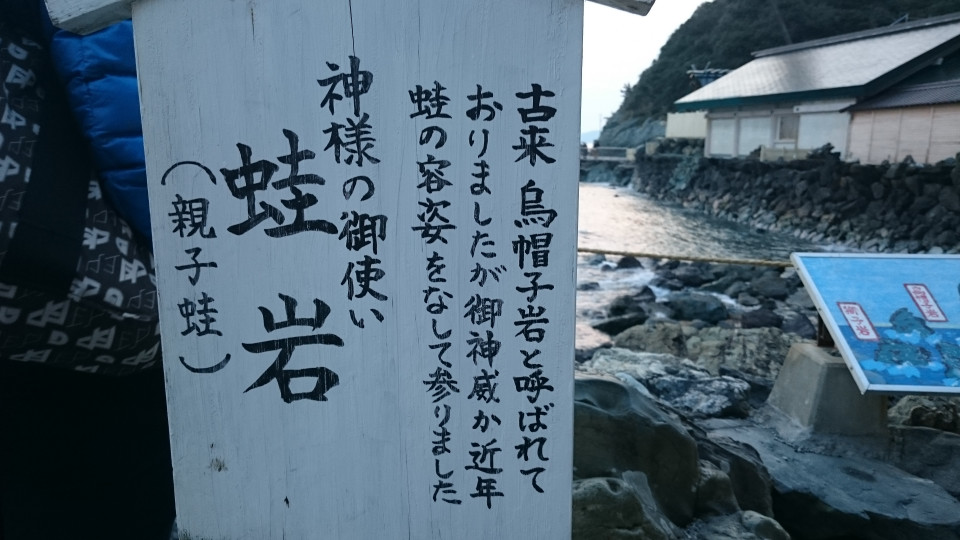 古来 烏帽子岩と呼ばれて
おりましたが御神威か近年
蛙の容姿をなして参りました
神様の御使い
蛙岩
（親子蛙）